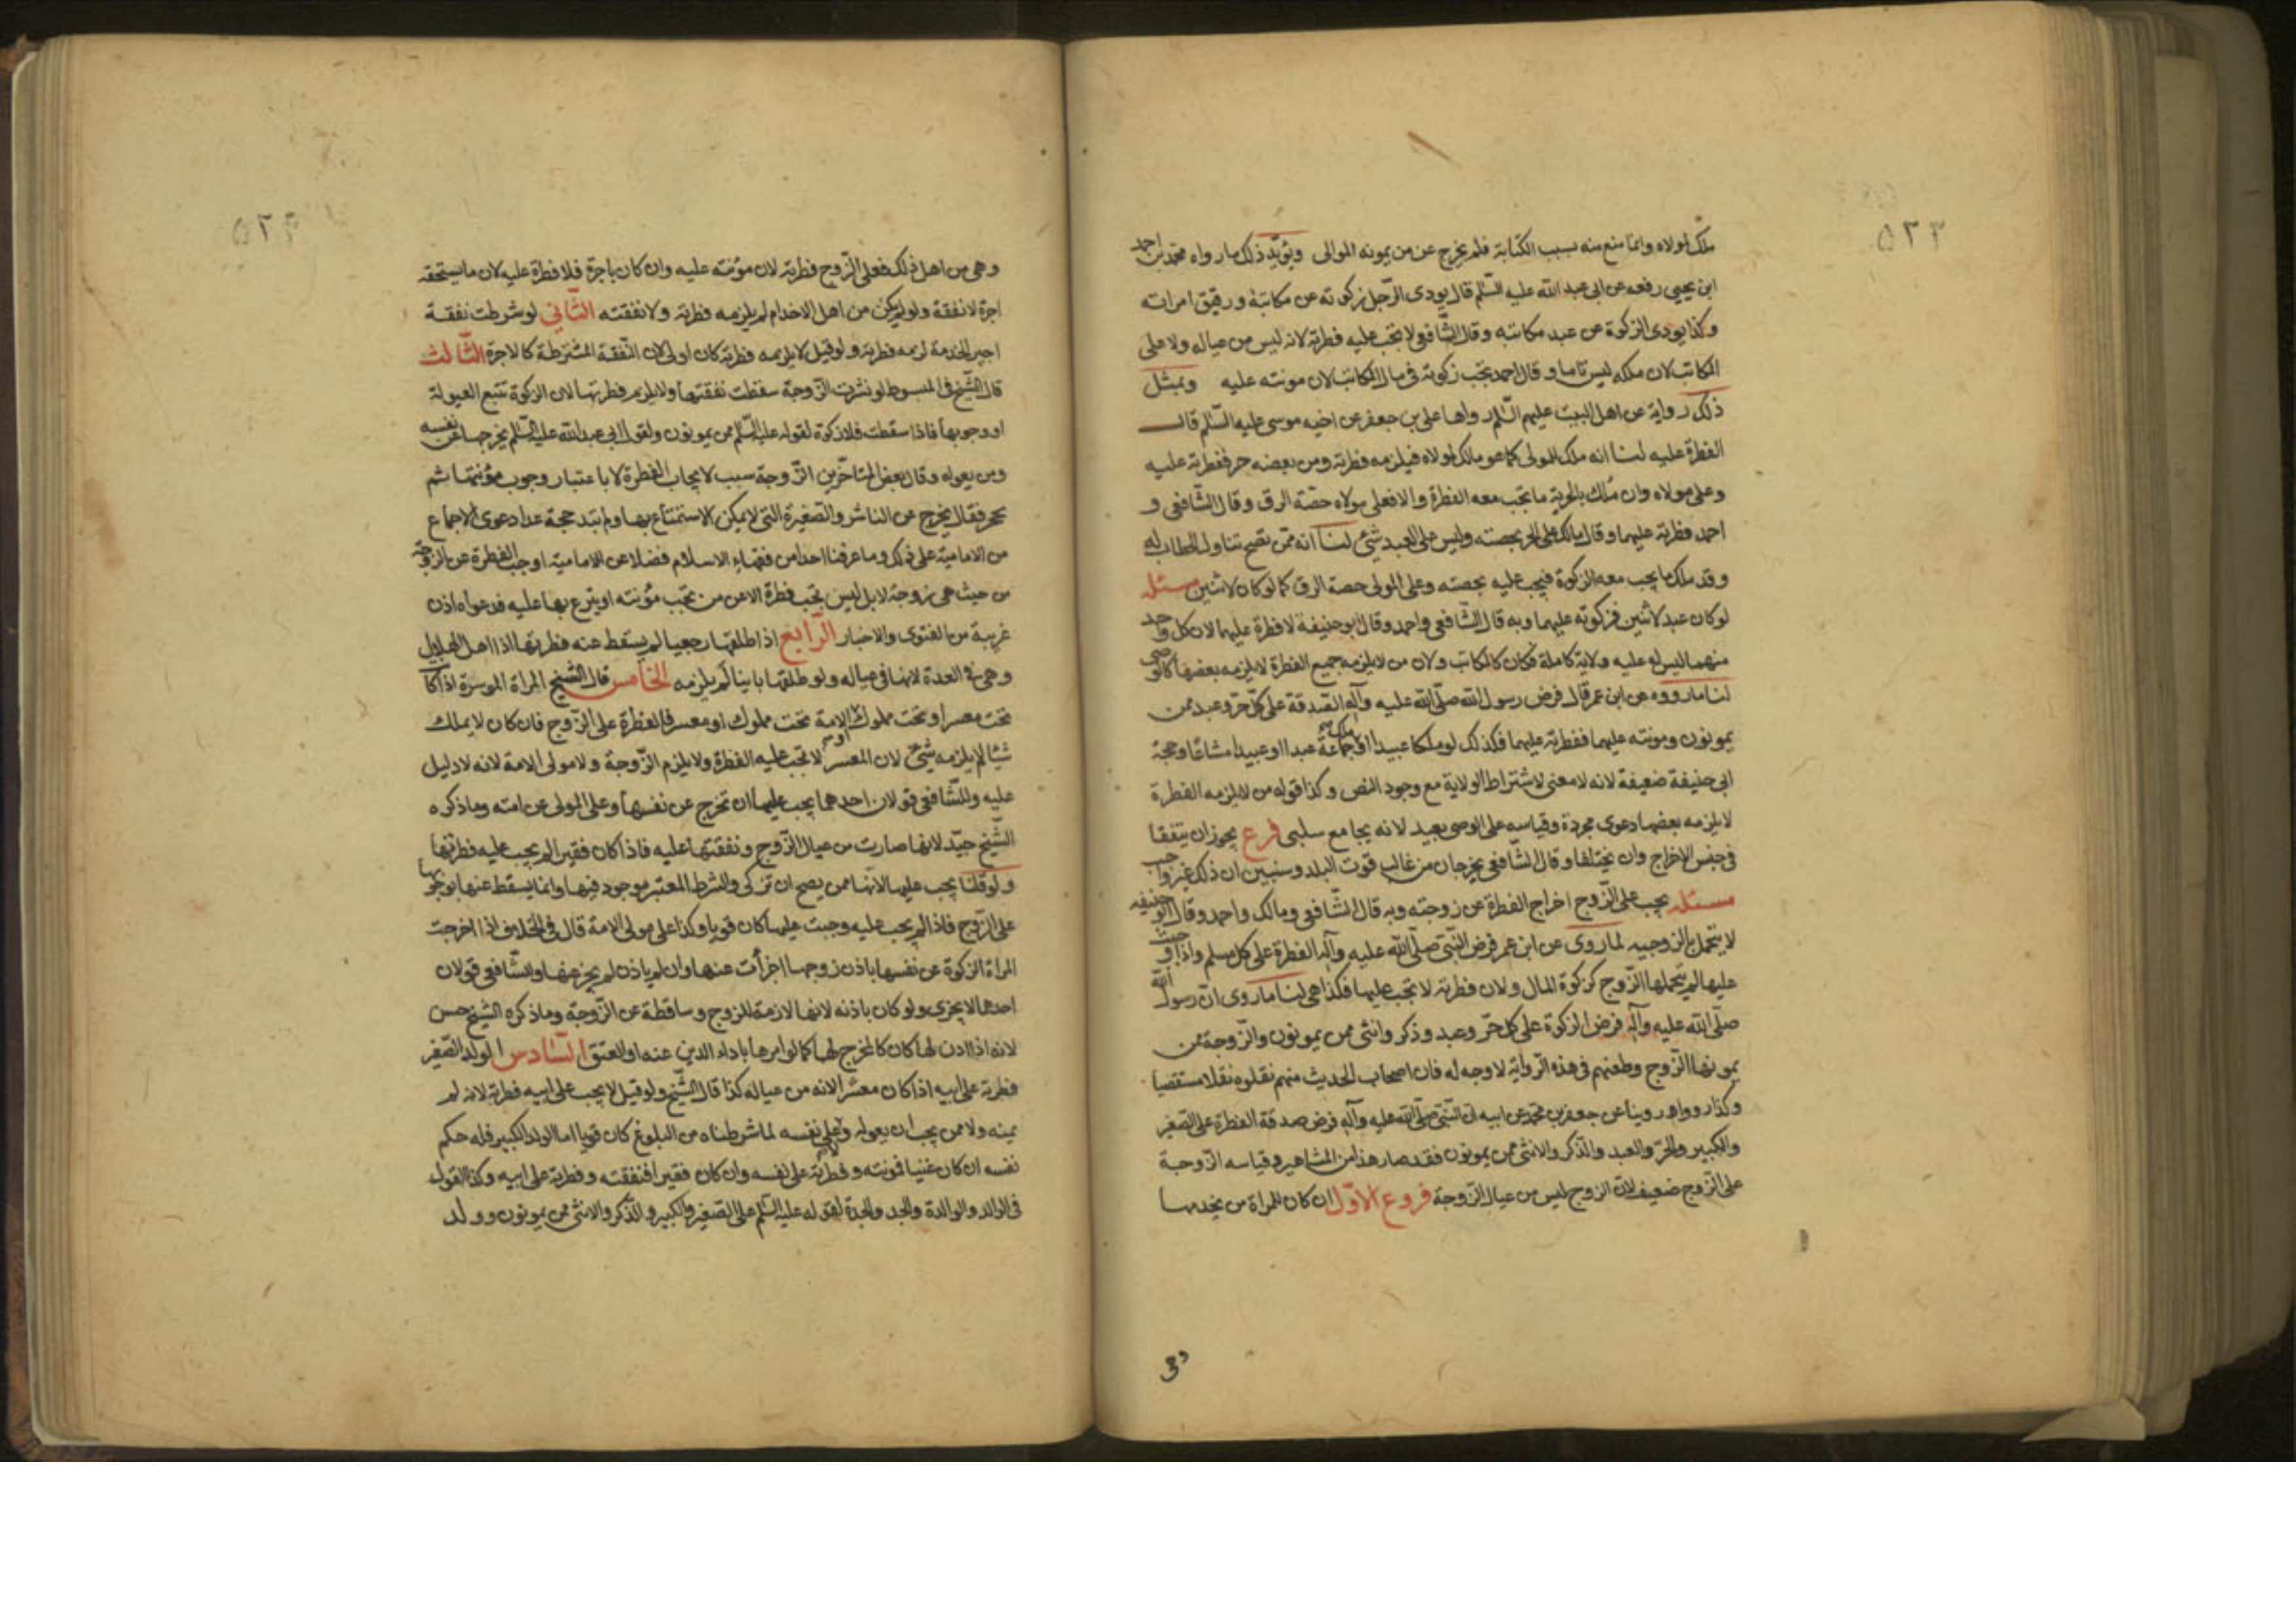 ٥٢٣
ملك لمولاه وانما منع منه بسبب الكتابة فلم يخرج عن من يمونه الموالى ويؤيد ذلك ما رواه محمد بن احمد
ابن يحيى رفعه عن ابى عبد الله عليه السلم قال يودى الرجل زكوته عن مكاتبه ورقيق امراته
وكذا يودى الزكوة عن عبد مكاتبه وقال الشافعى لا تجب عليه فطرته لانه ليس من عياله ولا على
المكاتب لان ملكه ليس تاما وقال احمد تجب زكوته فى مال المكاتب لان مونته عليه وبمثل
ذلك رواية عن اهل البيت عليهم السلم رواها على بن جعفر عن اخيه موسى عليه السلم قال
الفطرة عليه لنا انه ملك للمولى كما هو مالك لمولاه فيلزمه فطرته ومن بعضه حر ففطرته عليه
وعلى مولاه وان ملك بالحرية ما تجب معه الفطرة والا فعلى مولاه حصة الرق وقال الشافعى و
احمد فطرته عليهما وقال مالك على الحر بحصته وليس على العبد شئ لنا انه ممن يصح تناول الخطاب له
وقد ملك ما يجب معه الزكوة فيجب عليه بحصته وعلى المولى حصة الرق كما لو كان لاثنين مسئله
لو كان عبد لاثنين فزكوته عليهما وبه قال الشافعى واحمد وقال ابو حنيفة لا فطرة عليهما لان كل واحد
منهما ليس له عليه ولاية كاملة فكان كالمكاتب ولان من لا يلزمه جميع الفطرة لا يلزمه بعضها كالوصى
لنا ما رووه عن ابن عمر قال فرض رسول الله صلى الله عليه وآله الصدقة على كل حر وعبد ممن
يمونون ومونته عليهما ففطرته عليهما فكذلك لو ملكا عبيدا او ملك جماعة عبدا او عبيدا مشاعا وحجة
ابى حنيفة ضعيفة لانه لا معنى لاشتراط الولاية مع وجود النص وكذا قوله من لا يلزمه الفطرة
لا يلزمه بعضها دعوى مجردة وقياسه على الوصى بعيد لانه بجامع سلبى فرع يجوز ان يتفقا
فى جنس الاخراج وان يختلفا وقال الشافعى يخرجان من غالب قوت البلد وسنبين ان ذلك غير واجب
مسئله يجب على الزوج اخراج الفطرة عن زوجته وبه قال الشافعى ومالك واحمد وقال ابو حنيفه
لا يتحمل بالزوجيه لما روى عن ابن عمر فرض النبى صلى الله عليه وآله الفطرة على كل مسلم واذا وجبت
عليها لم يتحملها الزوج كزكوة المال ولان فطرته لا تجب عليها فكذا هى لنا ما روى ان رسول الله
صلى الله عليه وآله فرض الزكوة على كل حر وعبد وذكر وانثى ممن يمونون والزوجة ممن
يمونها الزوج وطعنهم فى هذه الرواية لا وجه له فان اصحاب الحديث منهم نقلوه نقلا مستقصيا
وكذا رووا ورويناه عن جعفر بن محمد عن ابيه ان النبى صلى الله عليه وآله فرض صدقة الفطرة على الصغير
والكبير والحر والعبد والذكر والانثى ممن يمونون فقد صار هذا من المشاهير وقياسه الزوجة
على الزوج ضعيف لان الزوج ليس من عيال الزوجة فروع الاول ان كان للمراة من يخدمها
وهى
٥٢٤
وهى من اهل ذلك فعلى الزوج فطرته لان مؤنته عليه وان كان باجرة فلا فطرة عليه لان ما يستحقه
اجرة لا نفقة ولو لم يكن من اهل الاخدام لم يلزمه فطرته ولا نفقته الثانى لو شرطت نفقة
اجير الخدمة لزمه فطرته ولو قيل لا يلزمه فطرته كان اولى لان النفقة المشترطة كالاجرة الثالث
قال الشيخ فى المبسوط لو نشزت الزوجة سقطت نفقتها ولا يلزم فطرتها لان الزكوة تتبع العيولة
او وجوبها فاذا سقطت فلا زكوة لقوله عليه السلم ممن يمونون ولقول ابى عبد الله عليه السلم يخرجها عن نفسه
ومن يعوله وقال بعض المتاخرين الزوجة سبب لايجاب الفطرة لا باعتبار وجوب مؤنتها ثم
تحر فقال يخرج عن الناشز والصغيرة التى لا يمكن الاستمتاع بها ولم يبد حجة عدا دعوى الاجماع
من الامامية على ذلك وما عرفنا احدا من فقهاء الاسلام فضلا عن الامامية اوجب الفطرة عن الزوجة
من حيث هى زوجة لا بل ليس تجب فطرة الا عن من تجب مؤنته او يتبرع بها عليه فدعواه اذن
غريبة من الفتوى والاخبار الرابع اذا طلقها رجعيا لم يسقط عنه فطرتها اذا اهل الهلال
وهى فى العدة لانها فى عياله ولو طلقها باينا لم يلزمه الخامس قال الشيخ المراة الموسرة اذا كانت
تحت معسر او تحت مملوك او الامة تحت مملوك او معسر فالفطرة على الزوج فان كان لا يملك
شيئا لم يلزمه شئ لان المعسر لا تجب عليه الفطرة ولا يلزم الزوجة ولا مولى الامة لانه لا دليل
عليه وللشافعى قولان احدهما يجب عليها ان تخرج عن نفسها وعلى المولى عن امته وما ذكره
الشيخ جيد لانها صارت من عيال الزوج ونفقتها عليه فاذا كان فقيرا لم يجب عليه فطرتها
ولو قلنا يجب عليها لانها ممن يصح ان تزكى والشرط المعتبر موجود فيها وانما يسقط عنها لوجوبها
على الزوج فاذا لم يجب عليه وجبت عليها كان قويا وكذا على مولى الامة قال فى الخلاف اذا اخرجت
المراة الزكوة عن نفسها باذن زوجها اجزأت عنها وان لم ياذن لم يجز عنها وللشافعى قولان
احدهما لا يجزى ولو كان باذنه لانها لازمة للزوج وساقطة عن الزوجة وما ذكره الشيخ حسن
لانه اذا اذن لها كان كالمخرج لها كما لو امرها باداء الدين عنه او العتق السادس الولد الصغير
فطرته على ابيه اذا كان معسرا لانه من عياله كذا قال الشيخ ولو قيل لا يجب على ابيه فطرته لانه لم
يمنه ولا ممن يجب ان يعوله ولا على نفسه لما شرطناه من البلوغ كان قويا اما الولد الكبير فله حكم
نفسه ان كان غنيا فمونته وفطرته على نفسه وان كان فقيرا فنفقته وفطرته على ابيه وكذا القول
فى الوالد والوالدة والجد والجدة لقوله عليه السلم على الصغير والكبير والذكر والانثى ممن يمونون وولد